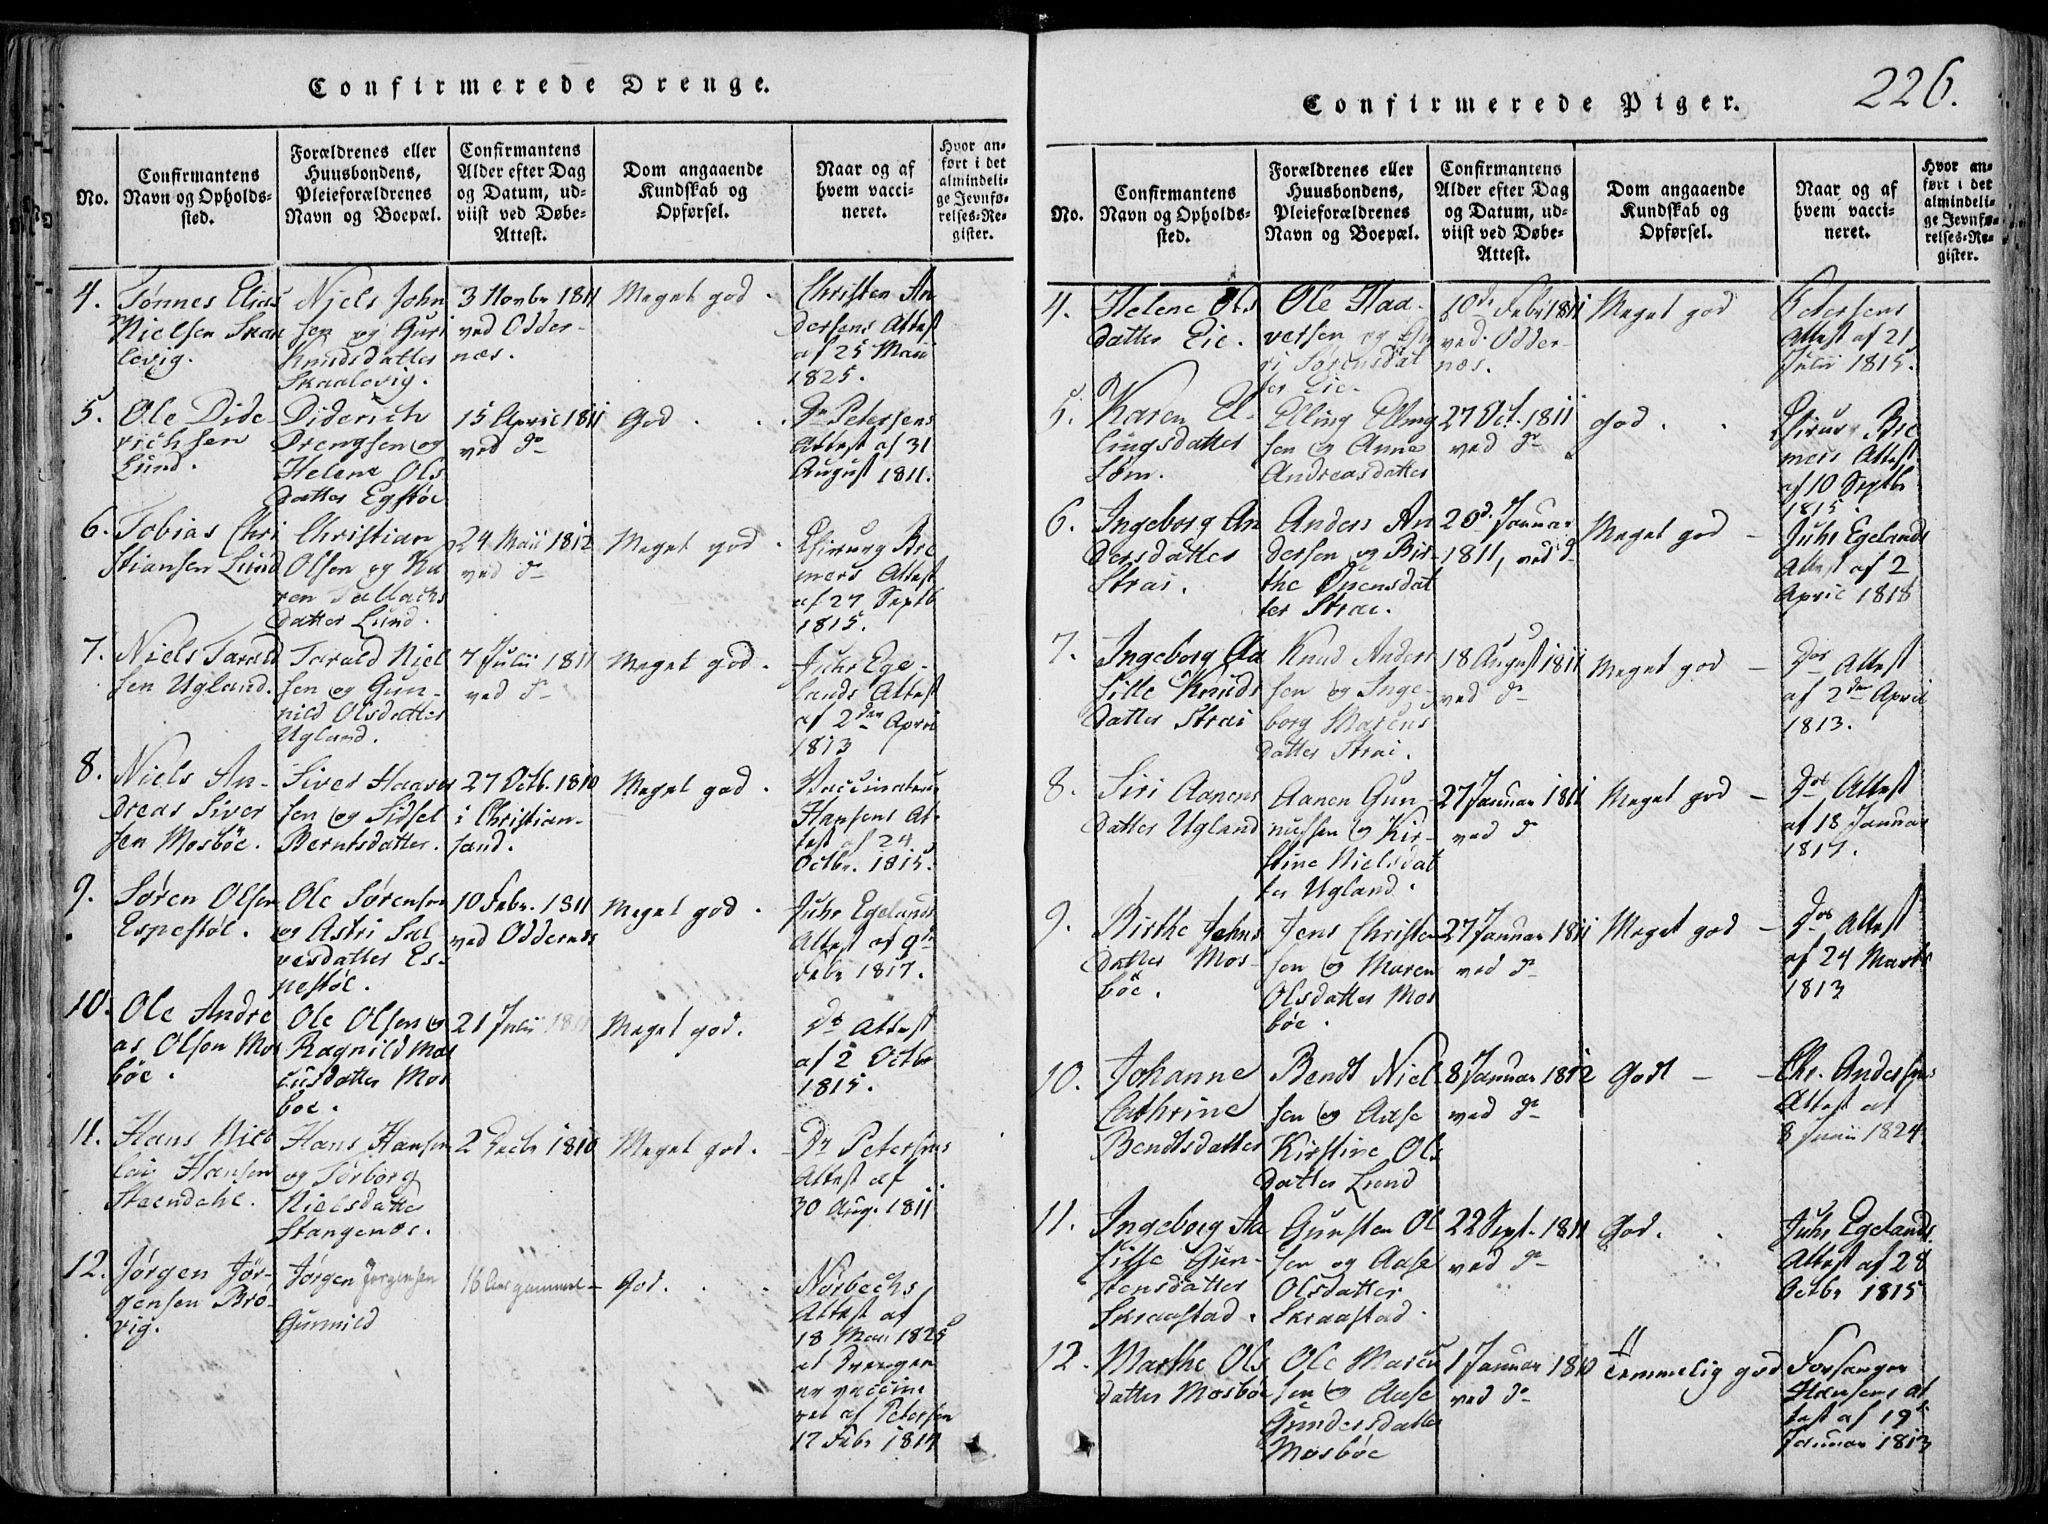 Confirmerede Drenge.
No.
Confirmantens
Navn og Opholds-
sted.
Forældrenes eller
Huusbondens,
Pleieforældrenes
Navn og Boepæl.
Confirmantens
Alder efter Dag
og Datum, ud-
viist ved Døbe-
Attest.
Dom angaaende
Kundskab og
Opførsel.
Naar og af
hvem vacci-
neret.
Hvor an-
ført i det
almindeli-
ge Jevnfø-
relses-Re-
gister.
4.
Tønnes Elias
Nielsen Skaa
levig.
Niels John
sen og Guri
Knudsdatter
Skaalevig.
3 Novbr 1811
ved Odder-
næs.
Meget god.
Christen An
dersens Attest
af 25 Mai
1825.
5.
Ole Dide-
richsen
Lund.
Diderich
Drengsen og
Helene Ols
datter Egstøe
15 April 1811
ved do
God
Dr Petersens
Attest af 31
August 1811.
6.
Tobias Chri
stiansen Lund
Christian
Olsen og Ka
ren Tallachs
datter Lund.
24 Maii 1812
ved do
Meget god.
Chirurg Bre
mers Attest
af 27 Septb
1815.
7.
Niels Tarald
sen Ugland.
Tarald Niel
sen og Gun-
nild Olsdatter
Ugland.
7 Julii 1811
ved do
Meget god.
Juhr Ege-
lands Attest
af 2den April
1813
8.
Niels An-
dreas Siver
sen Mosbøe.
Siver Haaver
sen og Sidsel
Berntsdatter.
27 Octb. 1810
i Christian-
sand.
Meget god.
Vaccinateur
Hansens At-
test af 24
Octbr. 1815.
9.
Søren Olsen
Espestøl.
Ole Sørensen
og Astri Sal
vesdatter Es-
pestøl.
10 Febr. 1811
ved Oddernæs
Meget god.
Juhr Egelands
Attest af 9de
Febr 1817.
10.
Ole Andre
as Olsen Mos
bøe.
Ole Olsen og
Ragnild Mar
cusdatter Mos
boe.
21 Julii 1811
Meget god.
Ds Attest
af 2 Octbr
1815.
11.
Hans Nico
lai Hansen
Hans Hansen
og Torborg
Nielsdatter
Stangenæs.
2 Decbr 1810
Meget god.
Dr Petersens
Attest af
30 Aug. 1811
12.
Jørgen Jør-
gensen Brø-
vig.
Jørgen Jørgensen
Gunnild
16 Aar gammel
God.
Nørbechs
Attest af
18 Mai 1825
at Drengen
er vaccine
ret af Petersen
17 Febr 1814
226.
Confirmerede Piger.
No.
Confirmantens
Navn og Opholds-
sted.
Forældrenes eller
Huusbondens,
Pleieforældrenes
Navn og Boepæl.
Confirmantens
Alder efter Dag
og Datum, ud-
viist ved Døbe-
Attest.
Dom angaaende
Kundskab og
Opførsel.
Naar og af
hvem vacci-
neret.
Hvor an-
ført i det
almindeli-
ge Jevnfø-
relses-Re-
gister.
4.
Helene Ols
datter Eie.
Ole Haa-
versen og Gu
ri Sørensdat
ter Eie.
10de Febr 1811
ved Odder-
næs.
Meget god
Petersens
Attest af 21
Julii 1815.
5.
Karen El-
lingsdatter
Søm.
Elling Elling
sen og Anne
Andreasdatter
27 Oct. 1811
ved do
God.
Chirurg Bre
mers Attest
af 10 Septbr
1815.
6.
Ingeborg An
dersdatter
Strai.
Anders An
dersen og Bir-
the Ouensdat
ter Strai.
20d. Januar
1811, ved do
Meget god
Juhr Egelands
Attest af 2
April 1818
7.
Ingeborg Aa
sille Knuds
datter Strai
Knud Anders
sen og Inge-
borg Marcus
datter Strai.
18 August 1811
ved do
Meget god
Ds Attest
af 2den April
1813.
8.
Siri Aanens
datter Ugland
Aanen Gun-
nufsen og Kir-
stine Nielsdat
ter Ugland.
27 Januar 1811
ved do
Meget god
Ds Attest
af 18 Januar
1817.
9.
Birthe Jehns
datter Mos-
bøe.
Jens Christen
sen og Maren
Olsdatter Mos
bøe.
27 Januar 1811
ved do
Meget god
Ds Attest
af 24 Marts
1813
10.
Johanne
Cathrine
Bendtsdatter
Bendt Niel
sen og Aase
Kirstine Ols
datter Lund
8 Januar 1812
ved do
Godt
Chr. Andersens
Attest af
8 Junii 1824
11.
Ingeborg Aa
sille Gun-
stensdatter
Skraastad.
Gunsten Ol
sen og Aase
Olsdatter
Skraastad.
22 Sept. 1811
ved do
God.
Juhr Egelands
Attest af 28
Octbr 1815
12.
Marthe Ols
datter Mosbøe
Ole Marcu
sen og Aase
Gundersdatter
Mosbøe
1 Januar 1810
ved do
Temmelig god
Forsanger
Hansens at
test af 19de
Januar 1813